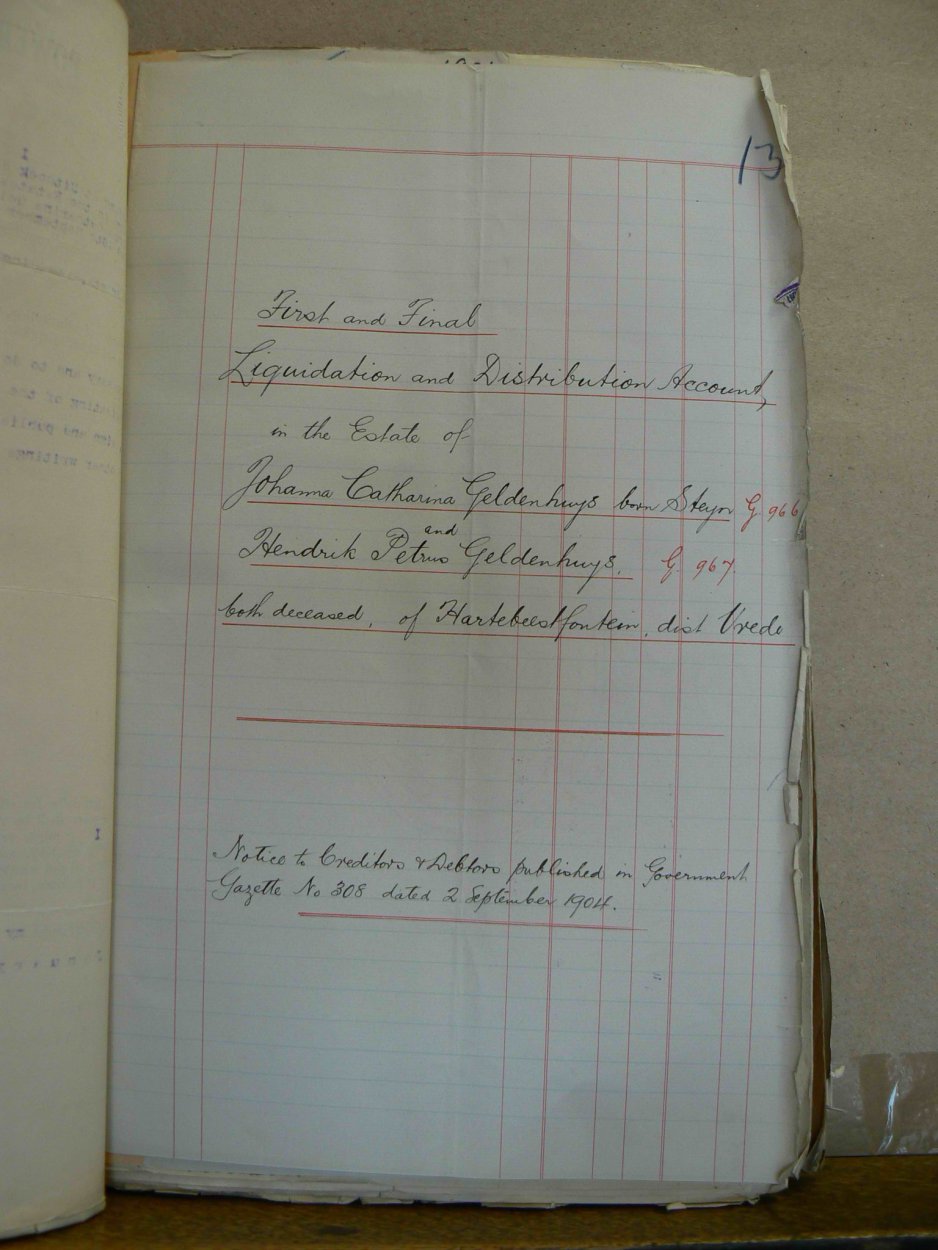 13
First and Final
Liquidation and Distribution Account,
in the Estate of
Johanna Catharina Geldenhuys born Steyn G. 966
and
Hendrik Petrus Geldenhuys. G. 967.
both deceased, of Hartebeestfontein, dist Vrede
Notice to Creditors & Debtors published in Government
Gazette No 308 dated 2 September 1904.